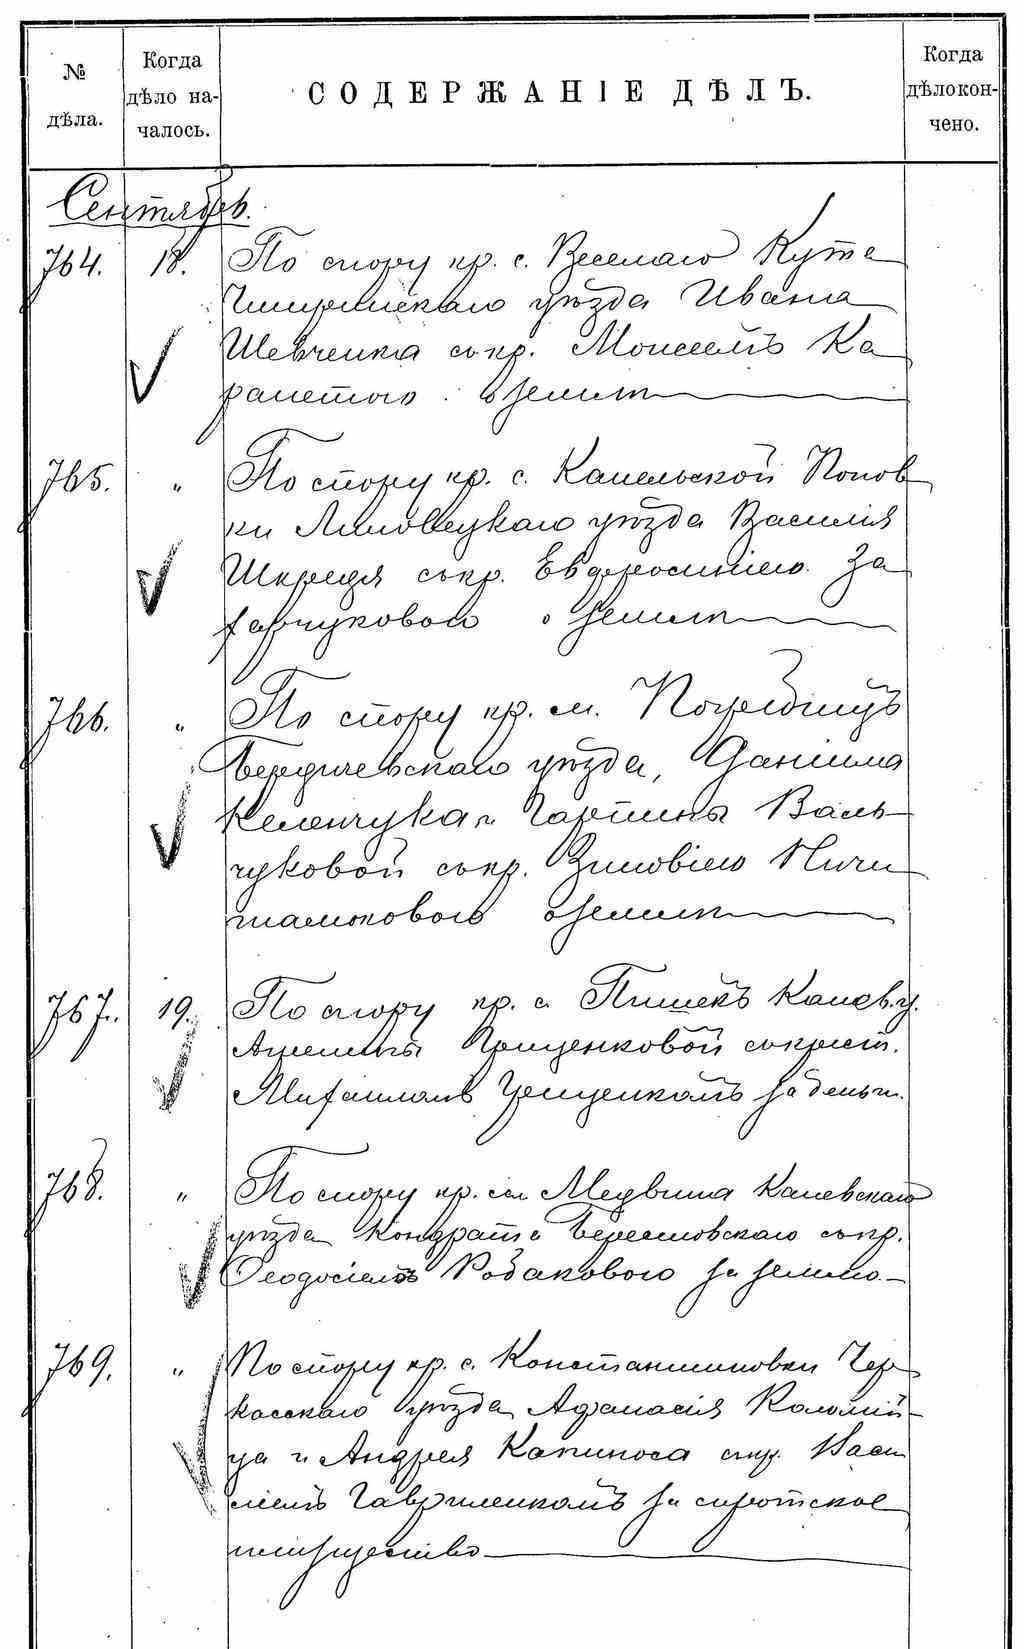 №
дѣла.
Когда
дѣло на-
чалось.
СОДЕРЖАНІЕ ДѢЛЪ.
Когда
дѣло кон-
чено.
Сентябрь.
764. 18. По спору кр. с. Веселаго Кута
уѣзда Ивана
Шевченка съ кр. Моисеемъ Ка
о землѣ
765. " По спору кр. с. Кашельской Попов
ки Липовецкаго уѣзда Василія
съ кр. Евфросиніею За
харчуковою о землѣ
766. " По спору кр. м. Погребищъ
Бердичевскаго уѣзда, Даніила
Келенчука и Гарпины Валь-
чуковой съ кр. Зиновіею Ничи
о землѣ
767. 19. По спору кр. с. Пишекъ Канев. у.
Грищенковой съ крест.
Михаиломъ Грищенкомъ за деньги.
768. " По спору кр. м. Медвина Каневскаго
уѣзда Кондрата Берешовскаго съ кр.
Феодосіемъ Робаковою за землю.
769. " По спору кр. с. Константиновки Чер
касскаго уѣзда Афанасія Коломій-
ца и Андрея Капиноса съ кр. Васи
ліемъ Гавриленкомъ за сиротское
имущество